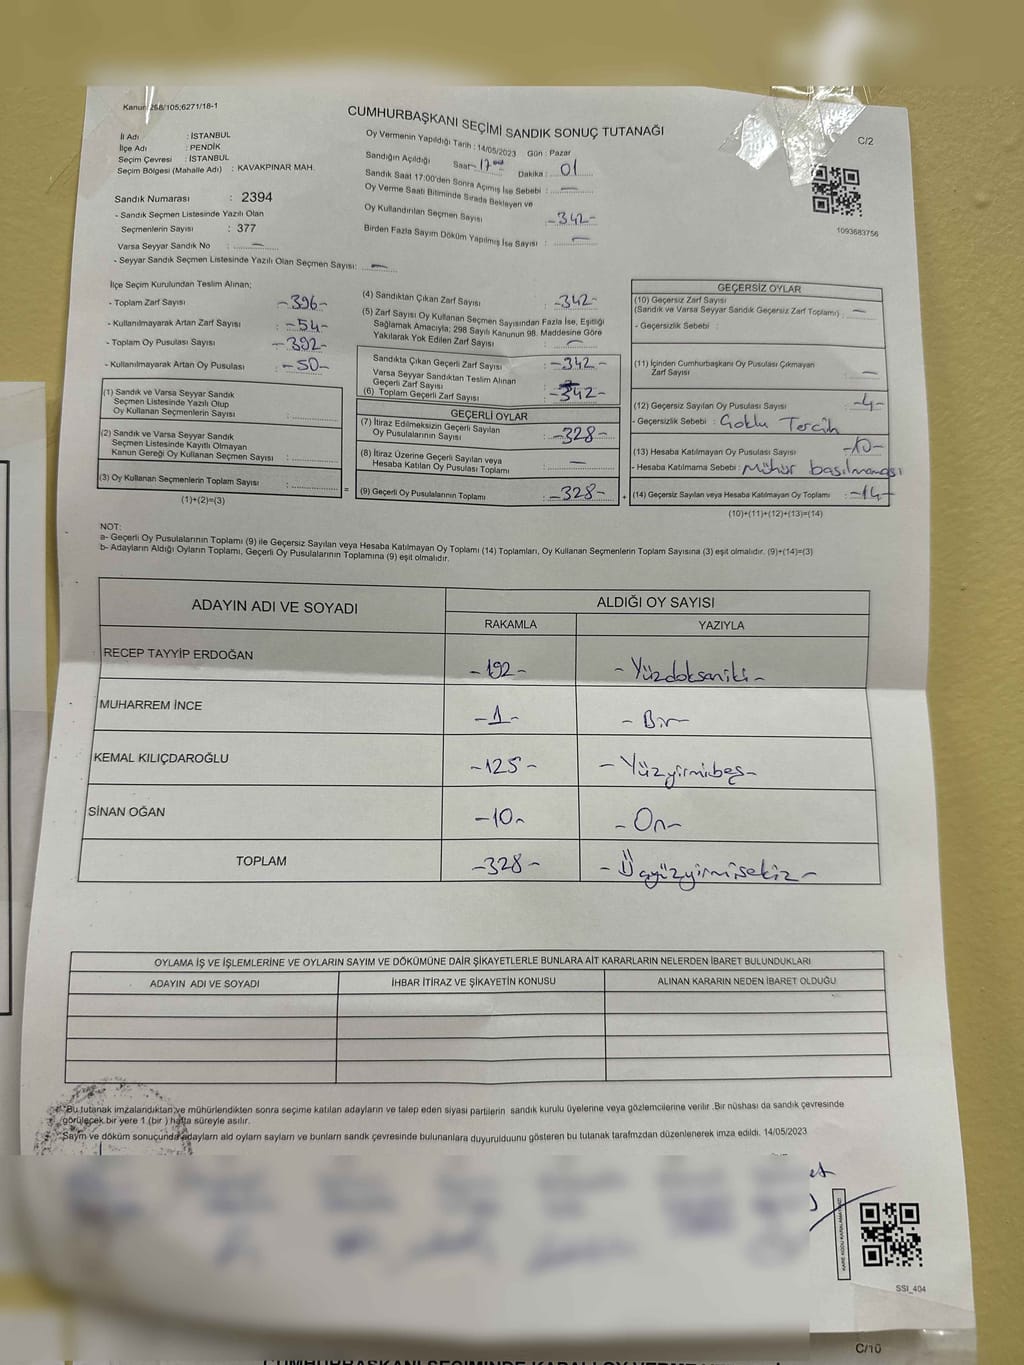 Kanun 298/105;6271/18-1
CUMHURBAŞKANI SEÇİMİ SANDIK SONUÇ TUTANAĞI
C/2
İl Adı : İSTANBUL
İlçe Adı : PENDİK
Seçim Çevresi : İSTANBUL
Seçim Bölgesi (Mahalle Adı) : KAVAKPINAR MAH.
Sandık Numarası : 2394
- Sandık Seçmen Listesinde Yazılı Olan
Seçmenlerin Sayısı : 377
Varsa Seyyar Sandık No : —
- Seyyar Sandık Seçmen Listesinde Yazılı Olan Seçmen Sayısı: —
Oy Vermenin Yapıldığı Tarih : 14/05/2023 Gün : Pazar
Sandığın Açıldığı Saat -17:00 Dakika : 01
Sandık Saat 17:00'den Sonra Açımış İse Sebebi : —
Oy Verme Saati Bitiminde Sırada Bekleyen ve
Oy Kullandırılan Seçmen Sayısı : -342-
Birden Fazla Sayım Döküm Yapılmış İse Sayısı : —
1093683756
İlçe Seçim Kurulundan Teslim Alınan;
- Toplam Zarf Sayısı : -396-
- Kullanılmayarak Artan Zarf Sayısı : -54-
- Toplam Oy Pusulası Sayısı : -392-
- Kullanılmayarak Artan Oy Pusulası : -50-
(1) Sandık ve Varsa Seyyar Sandık
Seçmen Listesinde Yazılı Olup
Oy Kullanan Seçmenlerin Sayısı :
(2) Sandık ve Varsa Seyyar Sandık
Seçmen Listesinde Kayıtlı Olmayan
Kanun Gereği Oy Kullanan Seçmen Sayısı :
(3) Oy Kullanan Seçmenlerin Toplam Sayısı :
(1)+(2)=(3)
(4) Sandıktan Çıkan Zarf Sayısı : -342-
(5) Zarf Sayısı Oy Kullanan Seçmen Sayısından Fazla İse, Eşitliği
Sağlamak Amacıyla; 298 Sayılı Kanunun 98. Maddesine Göre
Yakılarak Yok Edilen Zarf Sayısı : —
Sandıkta Çıkan Geçerli Zarf Sayısı : -342-
Varsa Seyyar Sandıktan Teslim Alınan
Geçerli Zarf Sayısı :
(6) Toplam Geçerli Zarf Sayısı : -342-
=
GEÇERLİ OYLAR
(7) İtiraz Edilmeksizin Geçerli Sayılan
Oy Pusulalarının Sayısı : -328-
(8) İtiraz Üzerine Geçerli Sayılan veya
Hesaba Katılan Oy Pusulası Toplamı : —
(9) Geçerli Oy Pusulalarının Toplamı : -328-
+
GEÇERSİZ OYLAR
(10) Geçersiz Zarf Sayısı
(Sandık ve Varsa Seyyar Sandık Geçersiz Zarf Toplamı) : —
- Geçersizlik Sebebi :
(11) İçinden Cumhurbaşkanı Oy Pusulası Çıkmayan
Zarf Sayısı : —
(12) Geçersiz Sayılan Oy Pusulası Sayısı : -4-
- Geçersizlik Sebebi : Çoklu Tercih
(13) Hesaba Katılmayan Oy Pusulası Sayısı : -10-
- Hesaba Katılmama Sebebi : Mühür basılmaması
(14) Geçersiz Sayılan veya Hesaba Katılmayan Oy Toplamı : -14-
(10)+(11)+(12)+(13)=(14)
NOT:
a- Geçerli Oy Pusulalarının Toplamı (9) ile Geçersiz Sayılan veya Hesaba Katılmayan Oy Toplamı (14) Toplamları, Oy Kullanan Seçmenlerin Toplam Sayısına (3) eşit olmalıdır. (9)+(14)=(3)
b- Adayların Aldığı Oyların Toplamı, Geçerli Oy Pusulalarının Toplamına (9) eşit olmalıdır.
ADAYIN ADI VE SOYADI ALDIĞI OY SAYISI
RAKAMLA YAZIYLA
RECEP TAYYİP ERDOĞAN -192- - Yüzdoksaniki -
MUHARREM İNCE -1- - Bir -
KEMAL KILIÇDAROĞLU -125- - Yüzyirmibeş -
SİNAN OĞAN -10- - On -
TOPLAM -328- - Üçyüzyirmisekiz -
OYLAMA İŞ VE İŞLEMLERİNE VE OYLARIN SAYIM VE DÖKÜMÜNE DAİR ŞİKAYETLERLE BUNLARA AİT KARARLARIN NELERDEN İBARET BULUNDUKLARI
ADAYIN ADI VE SOYADI İHBAR İTİRAZ VE ŞİKAYETİN KONUSU ALINAN KARARIN NEDEN İBARET OLDUĞU
Bu tutanak imzalandıktan ve mühürlendikten sonra seçime katılan adayların ve talep eden siyasi partilerin sandık kurulu üyelerine veya gözlemcilerine verilir .Bir nüshası da sandık çevresinde
görülecek bir yere 1 (bir ) hafta süreyle asılır.
Sayım ve döküm sonucunda adayların ald oyların sayların ve bunların sandık çevresinde bulunanlara duyurulduunu gösteren bu tutanak tarafmzdan düzenlenerek imza edildi. 14/05/2023
SSI_404
C/10